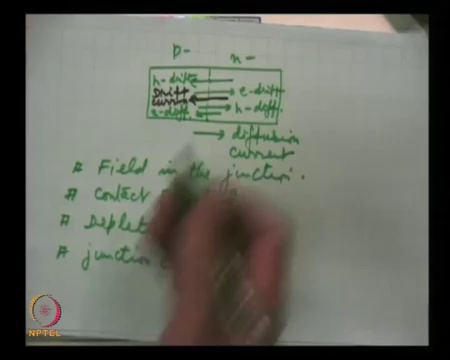 P- n-
h-drift
Drift e-drift
current h-diff.
e-diff.
diffusion
current
# Field in the junction.
# Contact
# Deplet
# junction
NPTEL